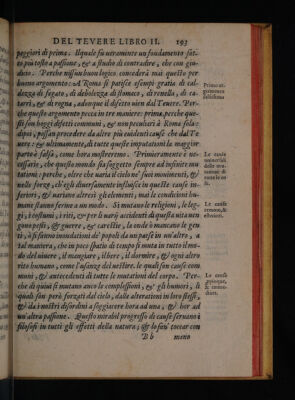 DEL TEVERE LIBRO II. 193
peggiori di prima. Il quale fu ueramente un fondamento fat-
to più tosto a passione, & a studio di contradire, che con giu-
dicio. Perche nissun buon logico concederà mai questo per
buono argomento: A Roma si patisce assespi gratia di cal-
dezza di fegato, di debolezza di stomaco, di renella, di ca-
tarri, & di rogna, adunque il difetto uien dal Teuere. Per-
che questo argomento pecca in tre maniere: prima, perche que-
sti son hoggi difetti communi, & non peculiari à Roma sola:
dipoi, possan procedere da altre più euidenti cause che dal Te-
uere: & ultimamente, di tutte queste imputationi la maggior
parte è falsa, come hora mostreremo. Primieramente è ne-
cessario, che questo mondo sia soggetto sempre ad infinite mu-
tationi: perche, oltre che uaria il cielo ne' suoi mouimenti, &
nelle forze, ch'egli diuersamente infuisce in queste cause in-
feriori, & uariano altresi gli elementi, mai le condicioni hu-
mane stanno ferme a un modo. Si mutano le religioni, le leg-
gi, i costumi, i riti, & per li uarij accidenti di questa uita uen
gono pesti, & guerre, & carestie, la onde li mancano le gen-
ti, ò si fanno inondationi de' popoli da un paese in un' altro, a
tal maniera, che in poco spatio di tempo si muta in tutto il mo-
do del uiuere, il mangiare, il bere, il dormire, & ogni altro
rito humano, come l'usanze del uestire. le quali son cause com-
muni, & antecedenti di tutte le mutationi del corpo. Per-
che di quiui si mutano anco le complessioni, & gli humori, li
quali son però forzati dal cielo, dalle alterationi in loro stessi,
& da i nostri disordini a soggiacere hora ad una, & hor ad
un' altra passione. Questo mirabil progresso di cause seruano i
filosofi in tutti gli effetti della natura, & lo fan' toccar con
B b mano
Primo ar-
gomento
falsissimo
Le cause
uniuersali
delle mu-
tationi di
tutte le co
se.
Le cause
remote, &
esteriori.
Le cause
propinque,
& imme-
diate.